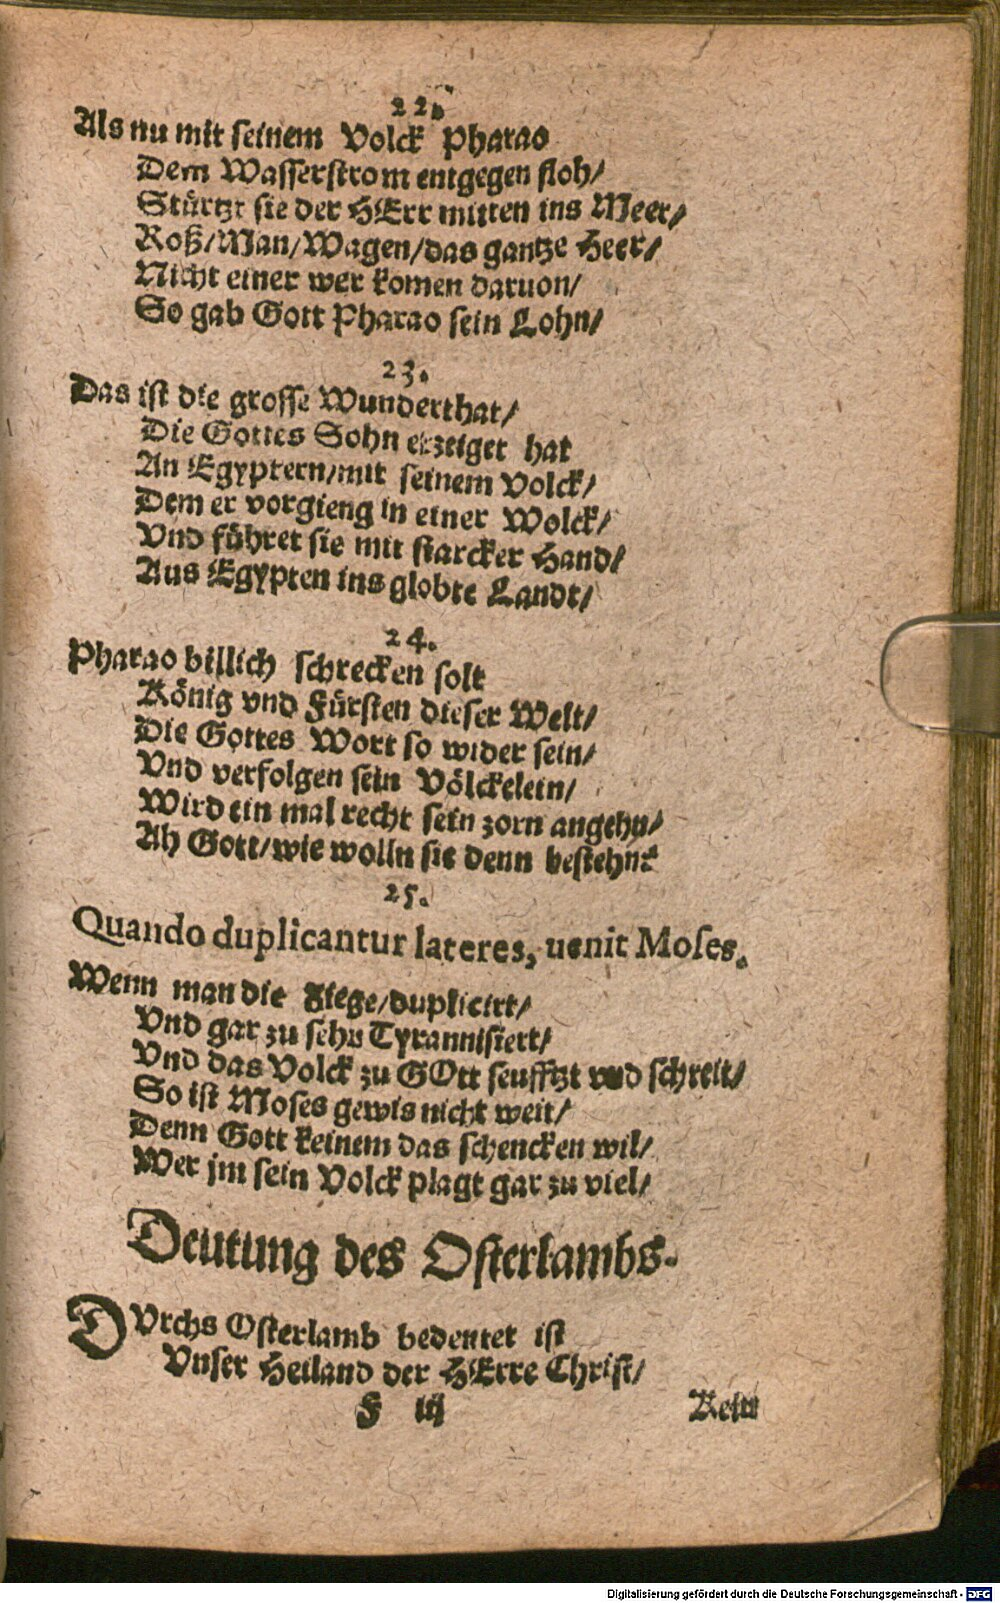 22.
Als nu mit seinem Volck Pharao
Dem Wasserstrom entgegen floh/
Stürtzt sie der HErr mitten ins Meer/
Roß/Man/Wagen/das gantze Heer/
Nicht einer wer komen daruon/
So gab Gott Pharao sein Lohn/
23.
Das ist die grosse Wunderthat/
Die Gottes Sohn erzeiget hat
An Egyptern/mit seinem Volck/
Dem er vorgieng in einer Wolck/
Vnd führet sie mit starcker Hand/
Aus Egypten ins globte Landt/
24.
Pharao billich schrecken solt
König vnd Fürsten dieser Welt/
Die Gottes Wort so wider sein/
Vnd verfolgen sein Völckelein/
Wird ein mal recht sein zorn angehn/
Ah Gott/wie wolln sie denn bestehn?
25.
Quando duplicantur lateres, uenit Moses.
Wenn man die Ziege/duplicirt/
Vnd gar zu sehr Tyrannisiert/
Vnd das Volck zu GOtt seufftzt vnd schreit/
So ist Moses gewis nicht weit/
Denn Gott keinem das schencken wil/
Wer jm sein Volck plagt gar zu viel/
Deutung des Osterlambs.
DVrchs Osterlamb bedeutet ist
Vnser Heiland der HErre Christ/
F iij Kein
Digitalisierung gefördert durch die Deutsche Forschungsgemeinschaft - DFG